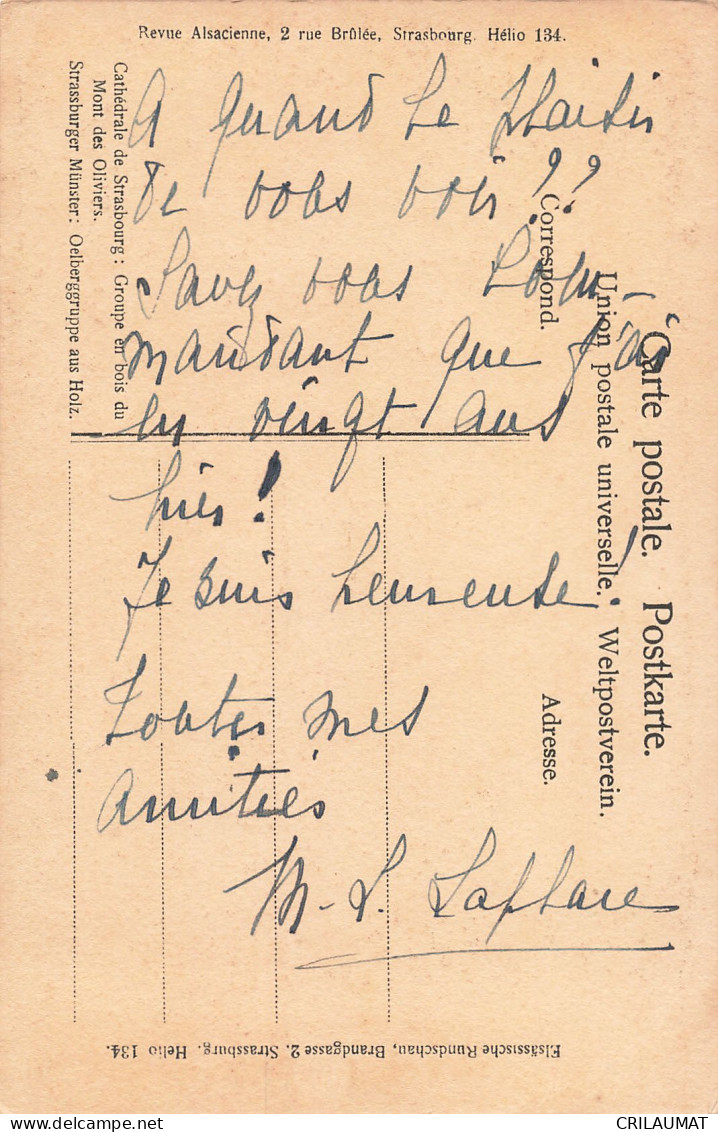 Revue Alsacienne, 2 rue Brûlée, Strasbourg. Hélio 134.
Cathédrale de Strasbourg : Groupe en bois du
Mont des Oliviers.
Strassburger Münster: Oelberggruppe aus Holz.
Carte postale. Postkarte.
Union postale universelle. Weltpostverein.
Correspond.
Adresse.
A quand le plaisir
de vous voir ??
Savez vous Com-
mandant que j'ai
eu vingt ans
hier !
Je suis heureuse !
Toutes mes
amitiés
M-L.
Elsässische Rundschau, Brandgasse 2. Strassburg. Helio 134.
CRILAUMAT